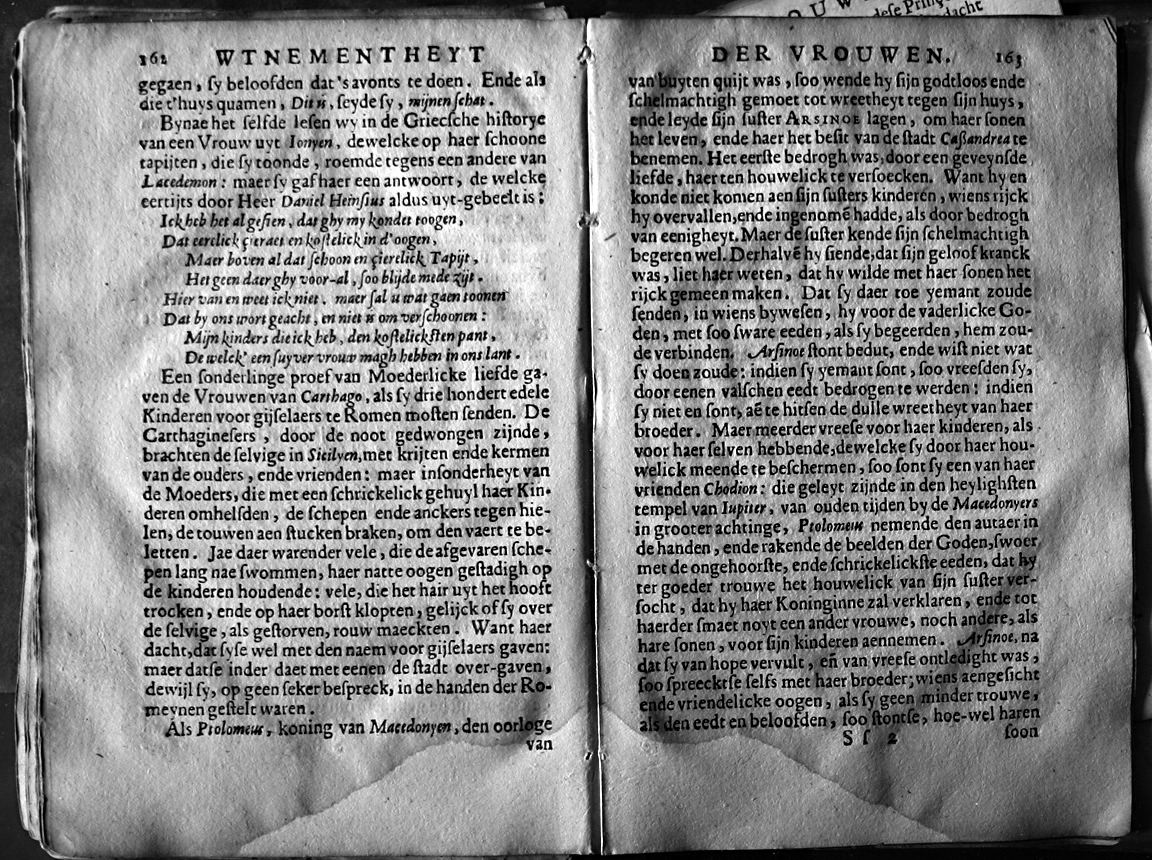 162 WTNEMENTHEYT
gegaen, ſy beloofden dat 's avonts te doen. Ende als
die t'huys quamen, Dit is, ſeyde ſy, mijnen ſchat.
Bynae het ſelfde leſen wy in de Griecſche hiſtorye
van een Vrouw uyt Ionyen, dewelcke op haer ſchoone
tapijten, die ſy toonde, roemde tegens een andere van
Lacedemon: maer ſy gaf haer een antwoort, de welcke
eertijts door Heer Daniel Heinſius aldus uyt-gebeelt is:
Ick heb het al geſien, dat ghy my kondet toogen,
Dat eerlick çieraet en koſtelick in d'oogen,
Maer boven al dat ſchoon en çierelick Tapijt,
Het geen daer ghy voor-al, ſoo blijde mede zijt.
Hier van en weet ick niet. maer ſal u wat gaen toonen
Dat by ons wort geacht, en niet is om verſchoonen:
Mijn kinders die ick heb, den koſtelickſten pant,
De welck' een ſuyver vrouw magh hebben in ons lant.
Een ſonderlinge proef van Moederlicke liefde ga-
ven de Vrouwen van Carthago, als ſy drie hondert edele
Kinderen voor gijſelaers te Romen moſten ſenden. De
Carthagineſers, door de noot gedwongen zijnde,
brachten de ſelvige in Sicilyen, met krijten ende kermen
van de ouders, ende vrienden: maer inſonderheyt van
de Moeders, die met een ſchrickelick gehuyl haer Kin-
deren omhelſden, de ſchepen ende anckers tegen hie-
len, de touwen aen ſtucken braken, om den vaert te be-
letten. Jae daer warender vele, die de afgevaren ſche-
pen lang nae ſwommen, haer natte oogen geſtadigh op
de kinderen houdende: vele, die het hair uyt het hooft
trocken, ende op haer borſt klopten, gelijck of ſy over
de ſelvige, als geſtorven, rouw maeckten. Want haer
dacht, dat ſyſe wel met den naem voor gijſelaers gaven:
maer datſe inder daet met eenen de ſtadt over-gaven,
dewijl ſy, op geen ſeker beſpreck, in de handen der Ro-
meynen geſtelt waren.
Als Ptolomeus, koning van Macedonyen, den oorloge
van
DER VROUWEN. 163
van buyten quijt was, ſoo wende hy ſijn godtloos ende
ſchelmachtigh gemoet tot wreetheyt tegen ſijn huys,
ende leyde ſijn ſuſter ARSINOE lagen, om haer ſonen
het leven, ende haer het beſit van de ſtadt Caſſandrea te
benemen. Het eerſte bedrogh was, door een geveynſde
liefde, haer ten houwelick te verſoecken. Want hy en
konde niet komen aen ſijn ſuſters kinderen, wiens rijck
hy overvallen, ende ingenomē hadde, als door bedrogh
van eenigheyt. Maer de ſuſter kende ſijn ſchelmachtigh
begeren wel. Derhalvē hy ſiende, dat ſijn geloof kranck
was, liet haer weten, dat hy wilde met haer ſonen het
rijck gemeen maken. Dat ſy daer toe yemant zoude
ſenden, in wiens byweſen, hy voor de vaderlicke Go-
den, met ſoo ſware eeden, als ſy begeerden, hem zou-
de verbinden. Arſinoe ſtont bedut, ende wiſt niet wat
ſy doen zoude: indien ſy yemant ſont, ſoo vreeſden ſy,
door eenen valſchen eedt bedrogen te werden: indien
ſy niet en ſont, aē te hitſen de dulle wreetheyt van haer
broeder. Maer meerder vreeſe voor haer kinderen, als
voor haer ſelven hebbende, dewelcke ſy door haer hou-
welick meende te beſchermen, ſoo ſont ſy een van haer
vrienden Chodion: die geleyt zijnde in den heylighſten
tempel van Iupiter, van ouden tijden by de Macedonyers
in grooter achtinge, Ptolomeus nemende den autaer in
de handen, ende rakende de beelden der Goden, ſwoer
met de ongehoorſte, ende ſchrickelickſte eeden, dat hy
ter goeder trouwe het houwelick van ſijn ſuſter ver-
ſocht, dat hy haer Koninginne zal verklaren, ende tot
haerder ſmaet noyt een ander vrouwe, noch andere, als
hare ſonen, voor ſijn kinderen aennemen. Arſinoe, na
dat ſy van hope vervult, eñ van vreeſe ontledight was,
ſoo ſpreecktſe ſelfs met haer broeder; wiens aengeſicht
ende vriendelicke oogen, als ſy geen minder trouwe,
als den eedt en beloofden, ſoo ſtontſe, hoe-wel haren
S ſ 2 ſoon
O U W
deſe Pring
dacht